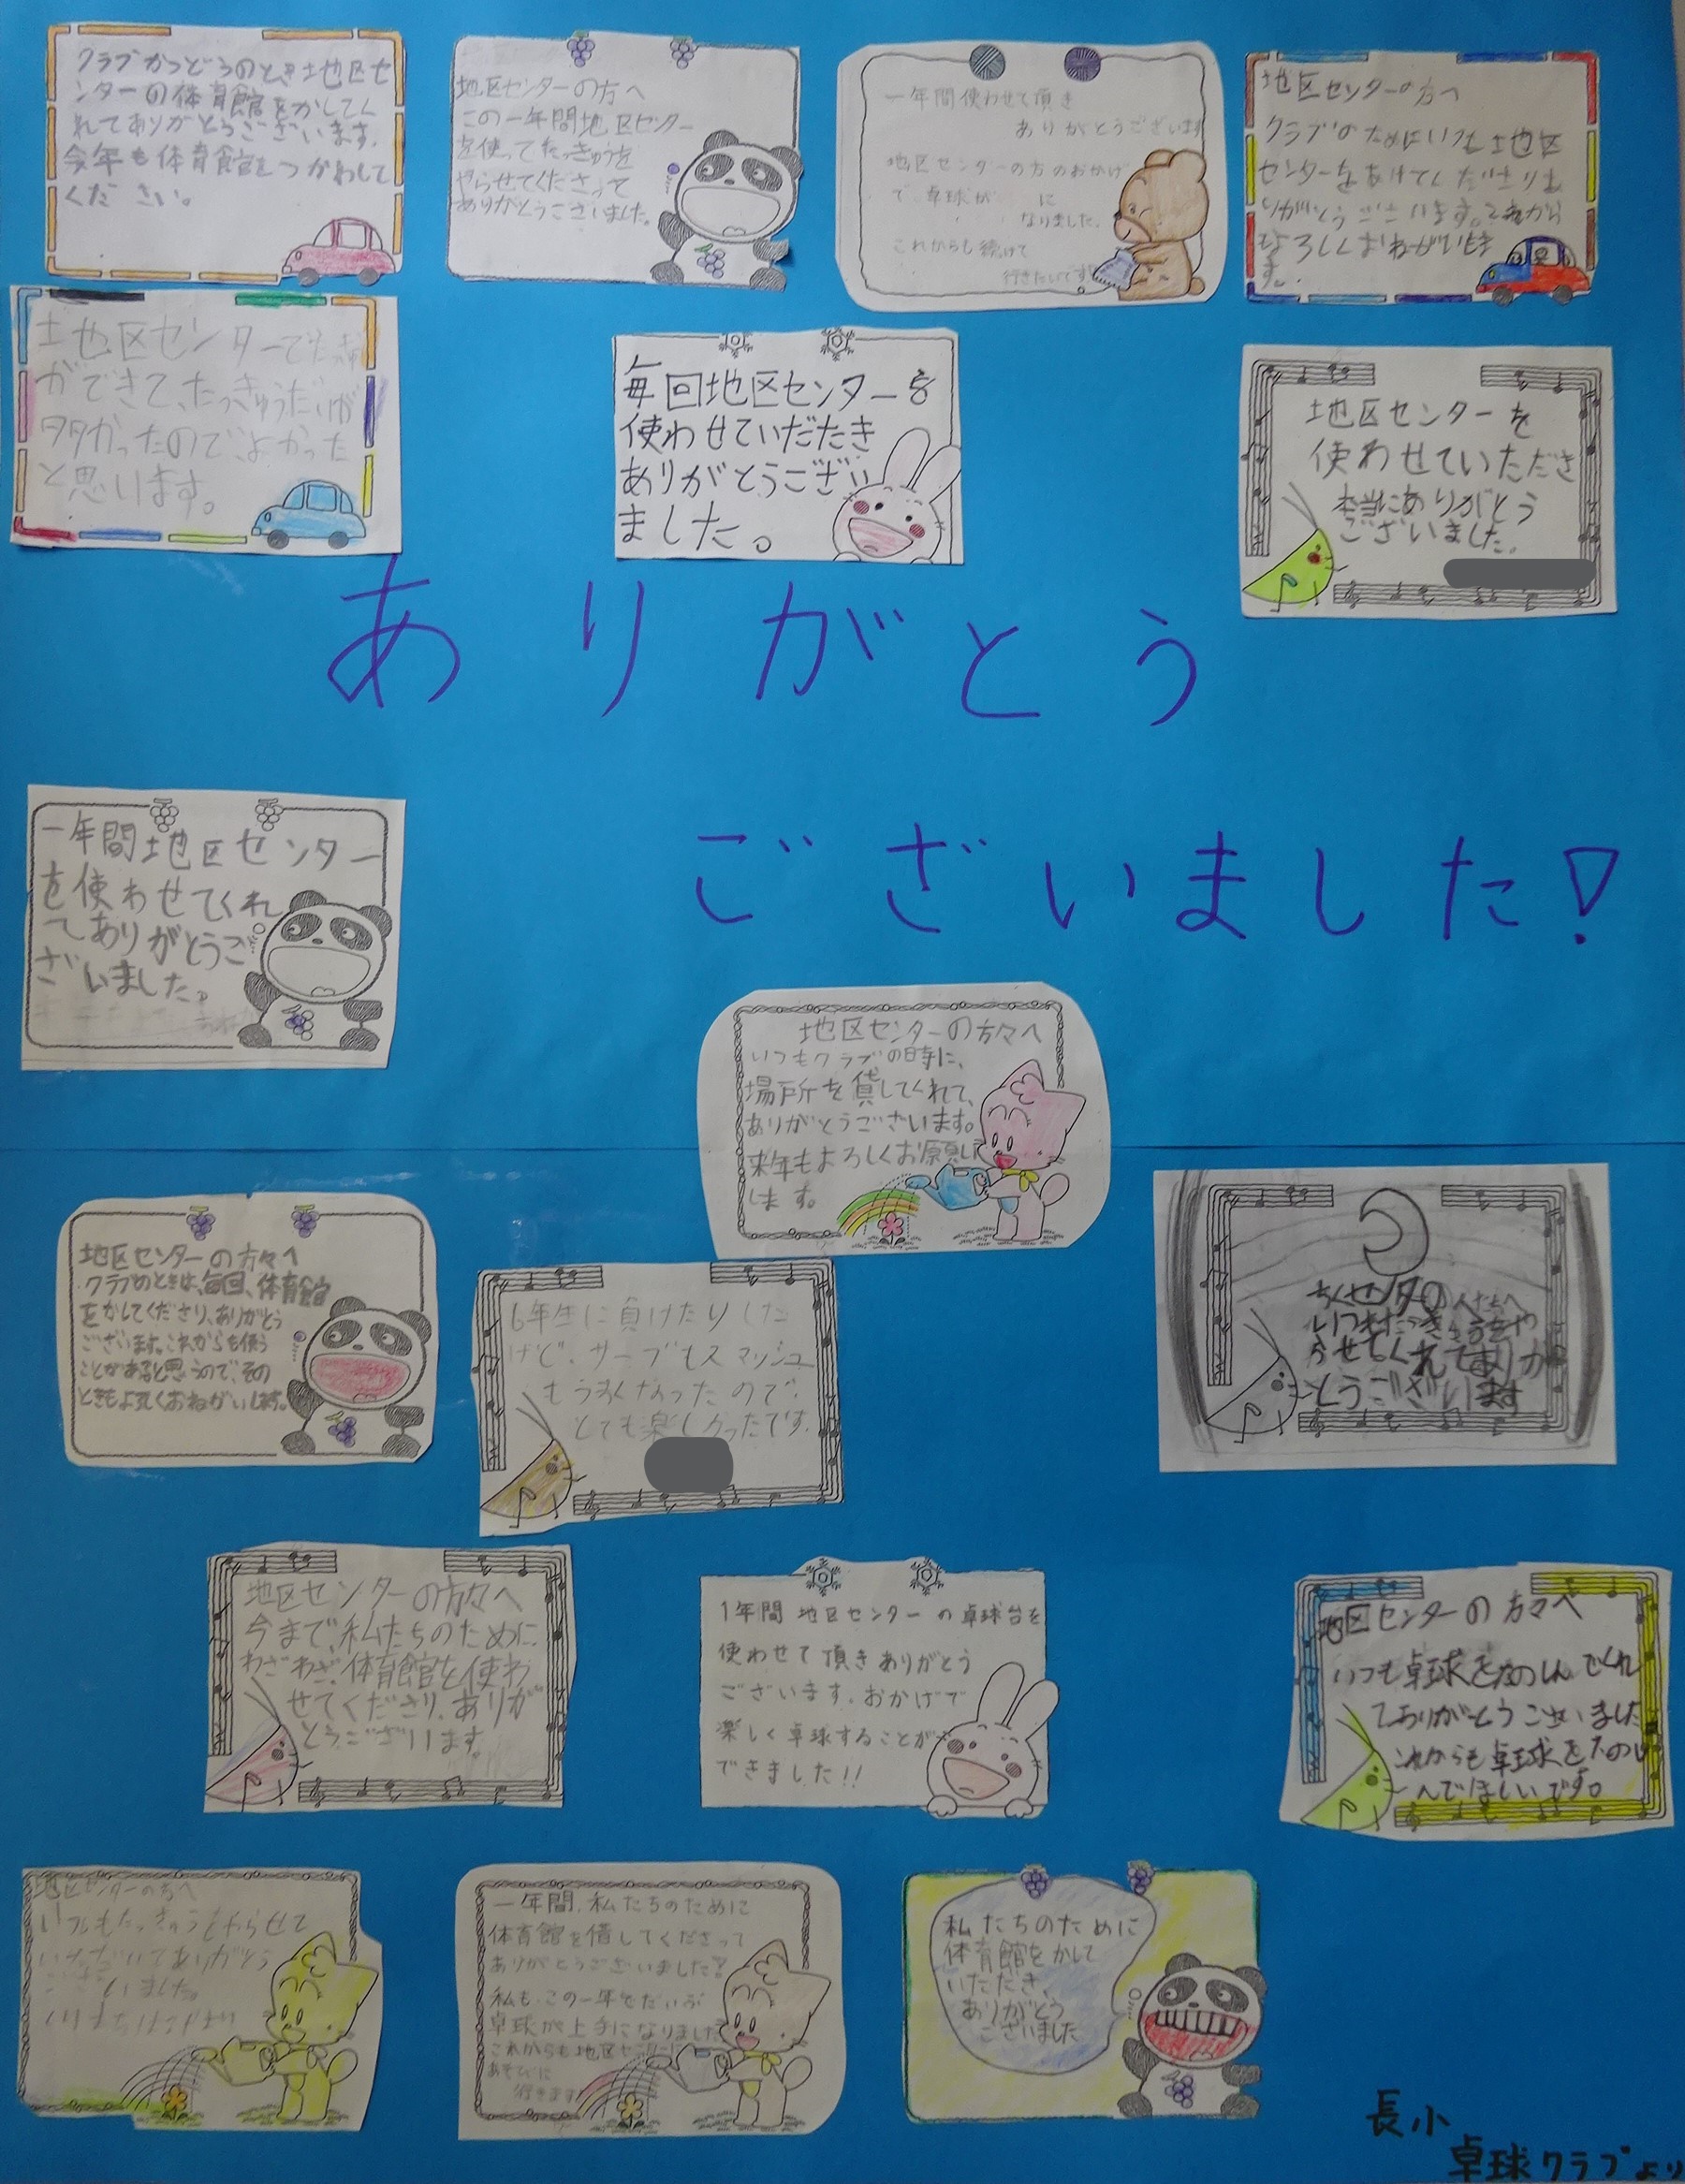 クラブかつどうのとき土地区セ
ンターの体育館をかしてく
れてありがとうございます。
今年も体育館をつかわして
ください。
地区センターの方へ
この一年間地区センター
を使ってたっきゅうを
やらせてくださって
ありがとうございました。
一年間使わせて頂き
ありがとうございます
地区センターの方のおかげ
で卓球が に
なりました。
これからも続けて
行きたいです!
地区センターの方へ
クラブのためにいつも土地区
センターをあけてくださりあ
りがとうございます。これから
よろしくおねがいしま
す。
土地区センターで
ができて、たっきゅうだいが
タタかったのでよかった
と思います。
毎回地区センターを
使わせていだたき
ありがとうござい
ました。
地区センターを
使わせていただき
本当にありがとう
ございました。
ありがとう
ございました!
一年間地区センター
を使わせてくれ
てありがとうご
ざいました。
地区センターの方々へ
いつもクラブの時に、
場所を貸してくれて、
ありがとうございます。
来年もよろしくお願いし
します。
地区センターの方々へ
クラブのときは、毎回、体育館
をかしてくださり、ありがとう
ございます。これからも使う
ことがあると思うので、その
ときもよろしくおねがいします。
6年生に負けたりした
けど、サーブもスマッシュ
もうまくなったので、
とても楽しかったです。
ちくセンタの人たちへ
いつもたっきゅうをや
らせてくれてありが
とうございます
地区センターの方々へ
今まで、私たちのために
わざわざ、体育館を使わ
せてくださり、ありが
とうございます。
1年間地区センターの卓球台を
使わせて頂きありがとう
ございます。おかげで
楽しく卓球することが
できました!!
地区センターの方々へ
いつも卓球をたのしんでくれ
てありがとうございました
これからも卓球をたのし
んでほしいです。
地区センターの方へ
いつもたっきゅうをやらせて
いただいてありがとう
ございました。
一年間、私たちのために
体育館を借してくださって
ありがとうございました!!
私も、この一年でだいぶ
卓球が上手になりました
これからも地区センターに
あそびに
行きます!
私たちのために
体育館をかして
いただき、
ありがとう
ございました
長小
卓球クラブより